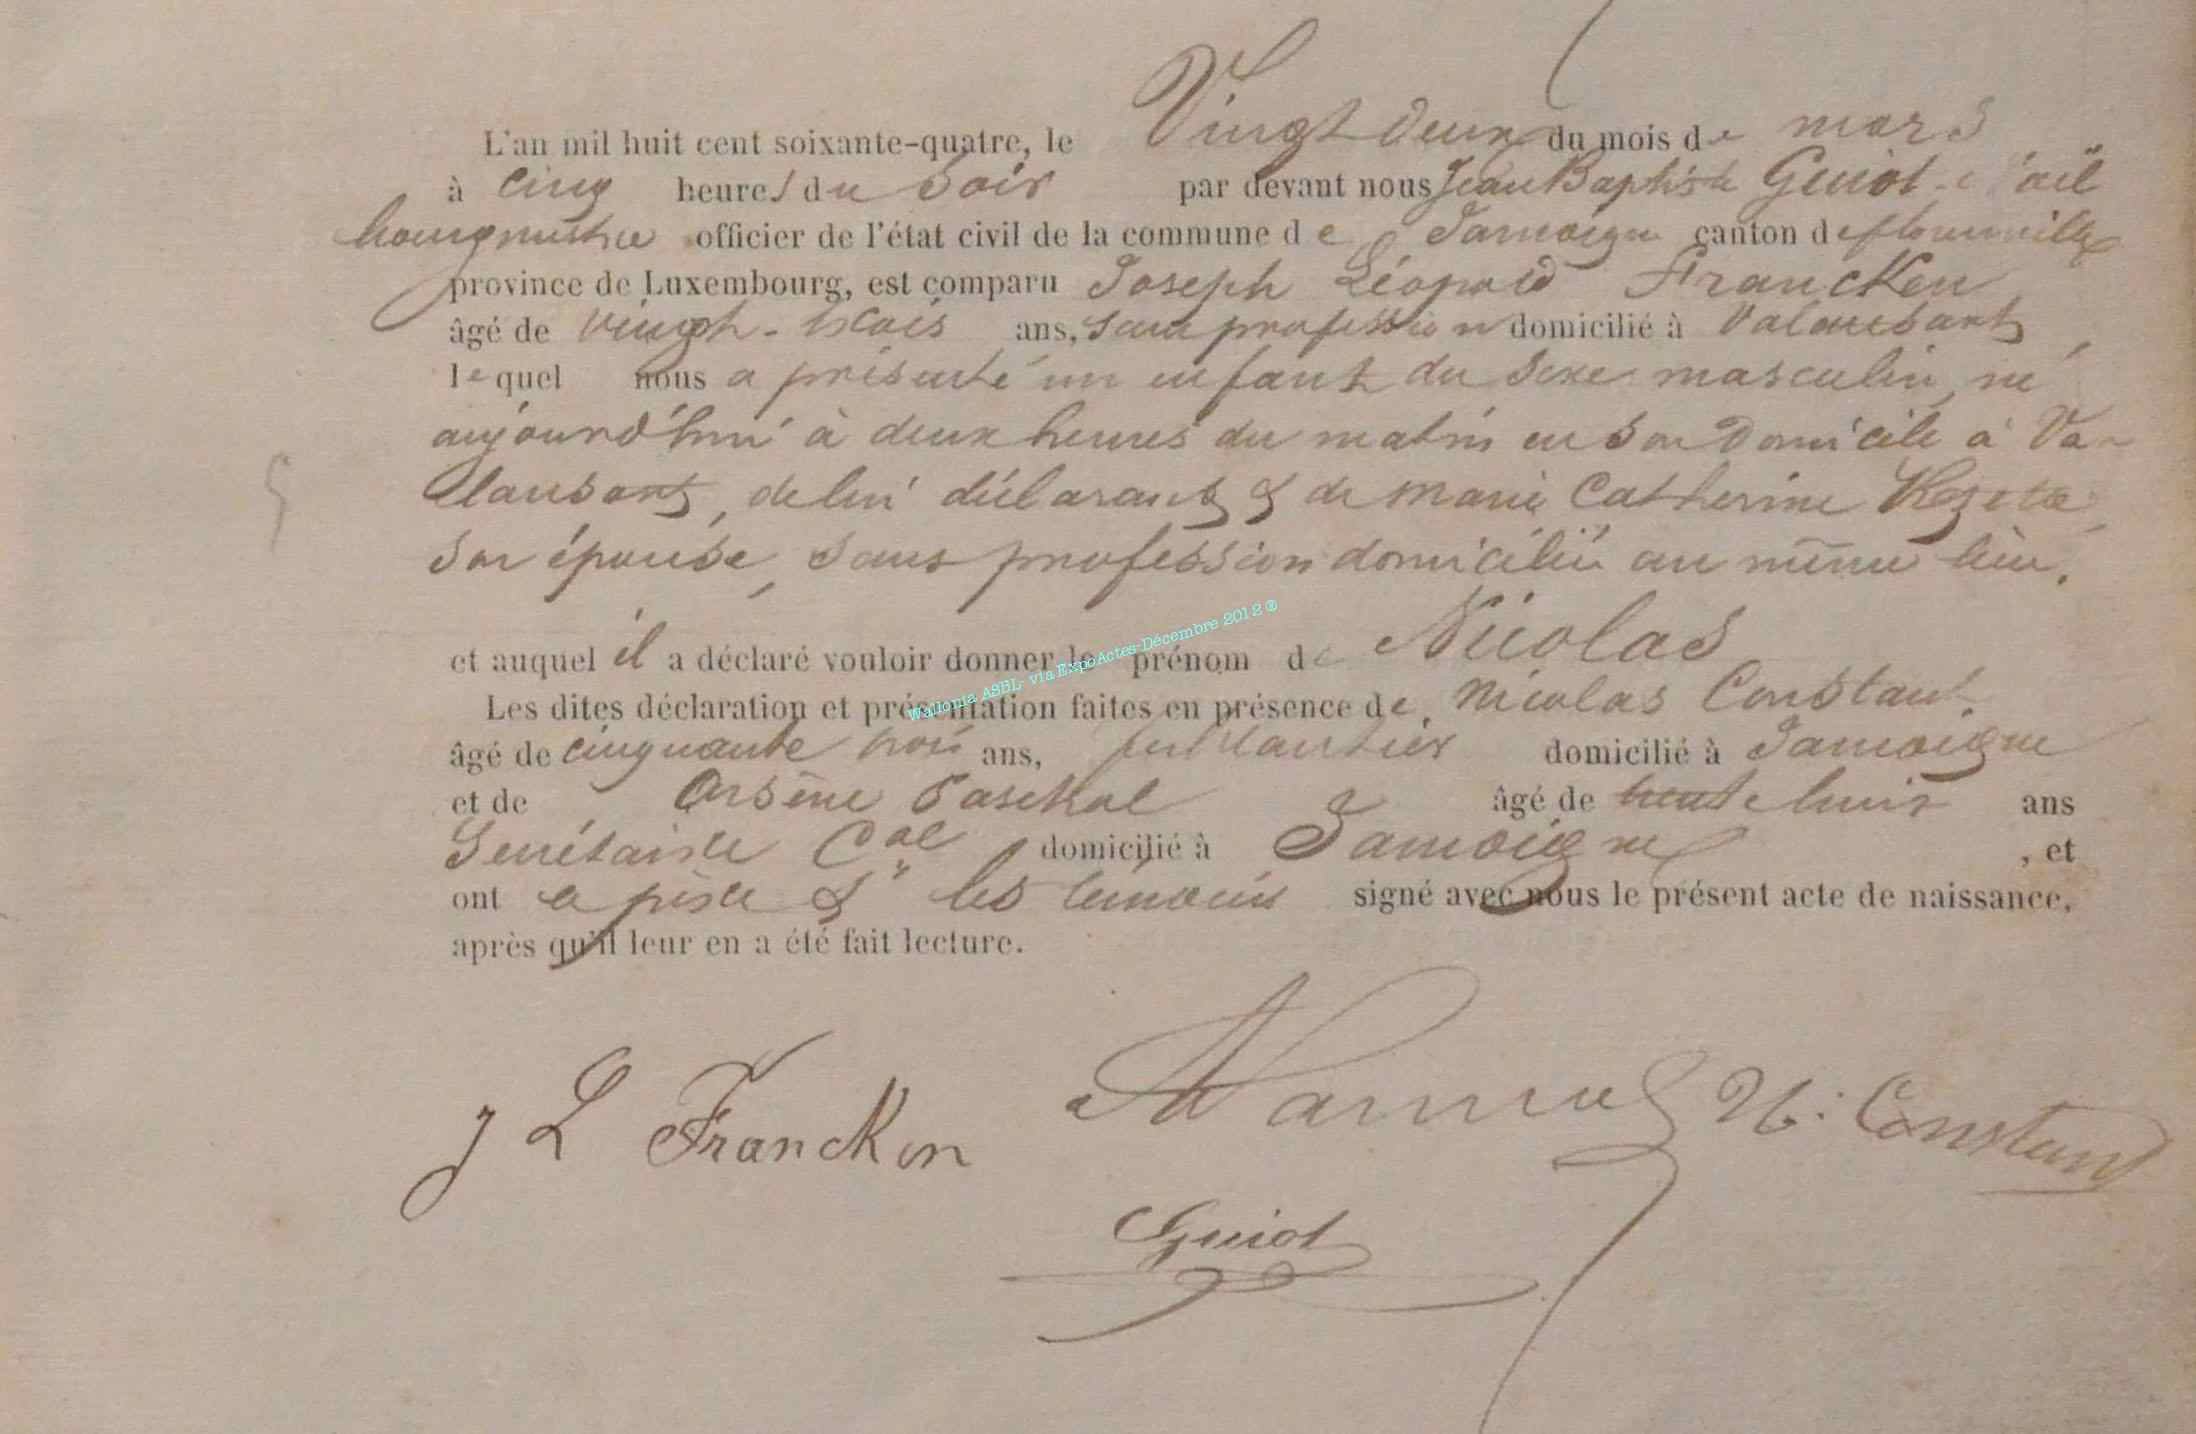 L'an mil huit cent soixante-quatre, le Vingt deux du mois de mars
à cinq heures du Soir par devant nous Jean Baptiste Guiot
bourgmestre officier de l'état civil de la commune de Jamoigne canton de florenville
province de Luxembourg, est comparu Joseph Léopold Francken
âgé de vingt-trois ans, sans profession domicilié à Valansart,
lequel nous a présenté un enfant du sexe masculin, né
aujourd'hui à deux heures du matin en son domicile à Va-
lansart, de lui déclarant & de marie Catherine
son épouse, sans profession domiciliée au même lieu.
et auquel il a déclaré vouloir donner le prénom de Nicolas
Les dites déclaration et présentation faites en présence de Nicolas Constant
âgé de cinquante trois ans, domicilié à Jamoigne
et de Arsène Paschal âgé de trente huit ans
Secrétaire Cal domicilié à Jamoigne, et
ont le père & les témoins signé avec nous le présent acte de naissance,
après qu'il leur en a été fait lecture.
Wallonia ASBL- via ExpoActes-Décembre 2012 ®
J L Francken
N. Constant
Guiot